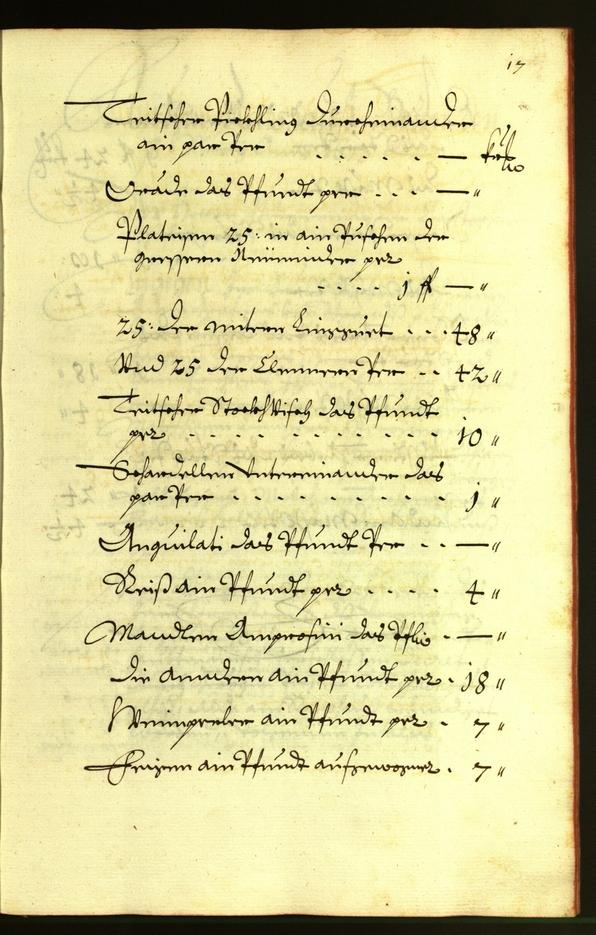 17
Teitscher Pickhling durcheinander
ain par Per . . . . . . —
das Pfundt per . . . — "
Plateisen 25: in ain Puschen der
grossern per
. . . . 1 ff — "
25: der mitern . . . 48 "
Und 25 der Clennern Per . . 42 "
Teitscher Stockhvisch das Pfundt
per . . . . . . . . . . . 10 "
Schardellen Untereinander das
par Per . . . . . . . . . 1 "
Anguilati das Pfundt Per . . — "
Reiß ain Pfundt per . . . . 4 "
Mandlen Ambrosini das . — "
die andern ain Pfundt per . 18 "
Weinperlen ain Pfundt per . 7 "
Feigen ain Pfundt . 7 "